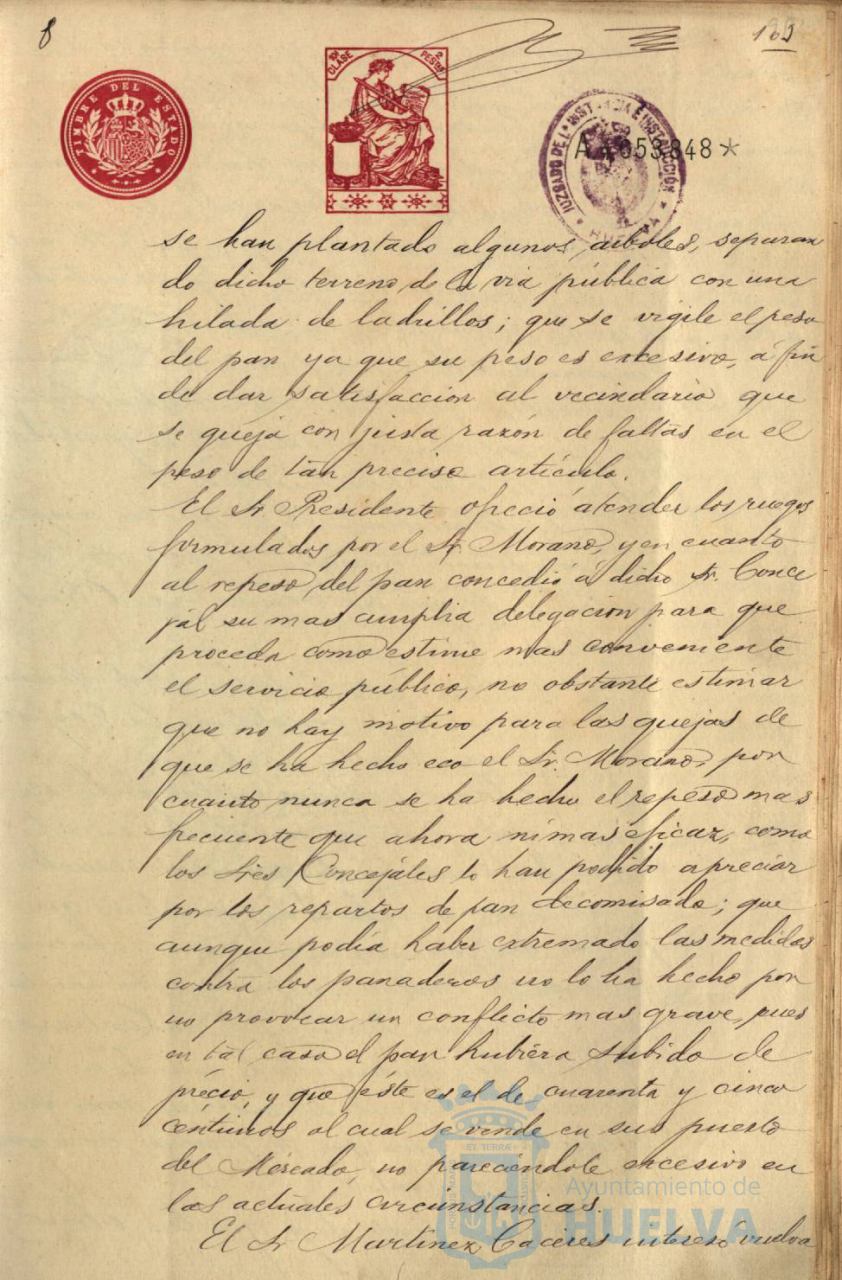 8
TIMBRE DEL ESTADO
CLASE
PESETAS
JUZGADO DE 1ª INSTANCIA É INSTRUCCIÓN
HUELVA
A 4.053.848*
se han plantado algunos árboles, separan
do dicho terreno de la via pública con una
hilada de ladrillos; que se vigile el peso
del pan ya que su peso es excesivo, á fin
de dar satisfacción al vecindario que
se queja con justa razón de faltas en el
peso de tan preciso artículo.
El Sr Presidente ofreció atender los ruegos
formulados por el Sr. Morano, y en cuanto
al repeso del pan concedió á dicho Sr. Conce
jal su mas amplia delegación para que
proceda como estime mas conveniente
el servicio público, no obstante estimar
que no hay motivo para las quejas de
que se ha hecho eco el Sr. Morano, por
cuanto nunca se ha hecho el repeso mas
frecuente que ahora ni mas eficaz, como
los Sres Concejáles lo han podido apreciar
por los repartos de pan decomisado; que
aunque podía haber extremado las medidas
contra los panaderos no lo ha hecho por
no provocar un conflicto mas grave, pues
en tal caso el pan hubiera subido de
précio, y que éste es el de cuarenta y cinco
céntimos al cual se vende en sus puesto
del Mercado, no pareciéndole excesivo en
las actuales circunstancias.
El Sr Martinez Caceres interesó vuelva
Ayuntamiento de
HUELVA